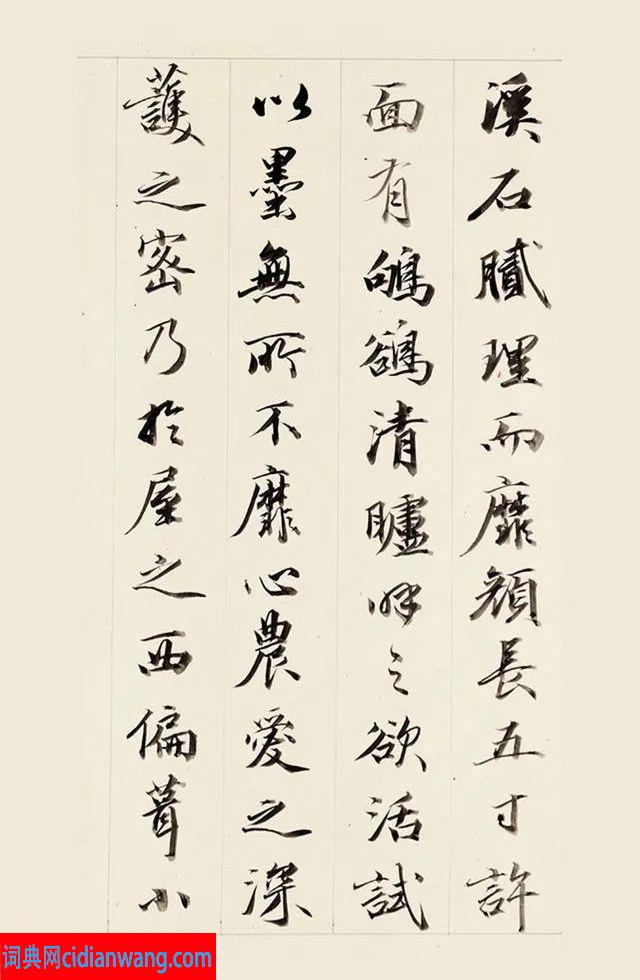 溪石膩理而靡顔長五寸許
面有鴝鵒清矑呼之欲活試
以墨無所不靡心農愛之深
護之密乃於屋之西偏葺小
词典网cidianwang.com